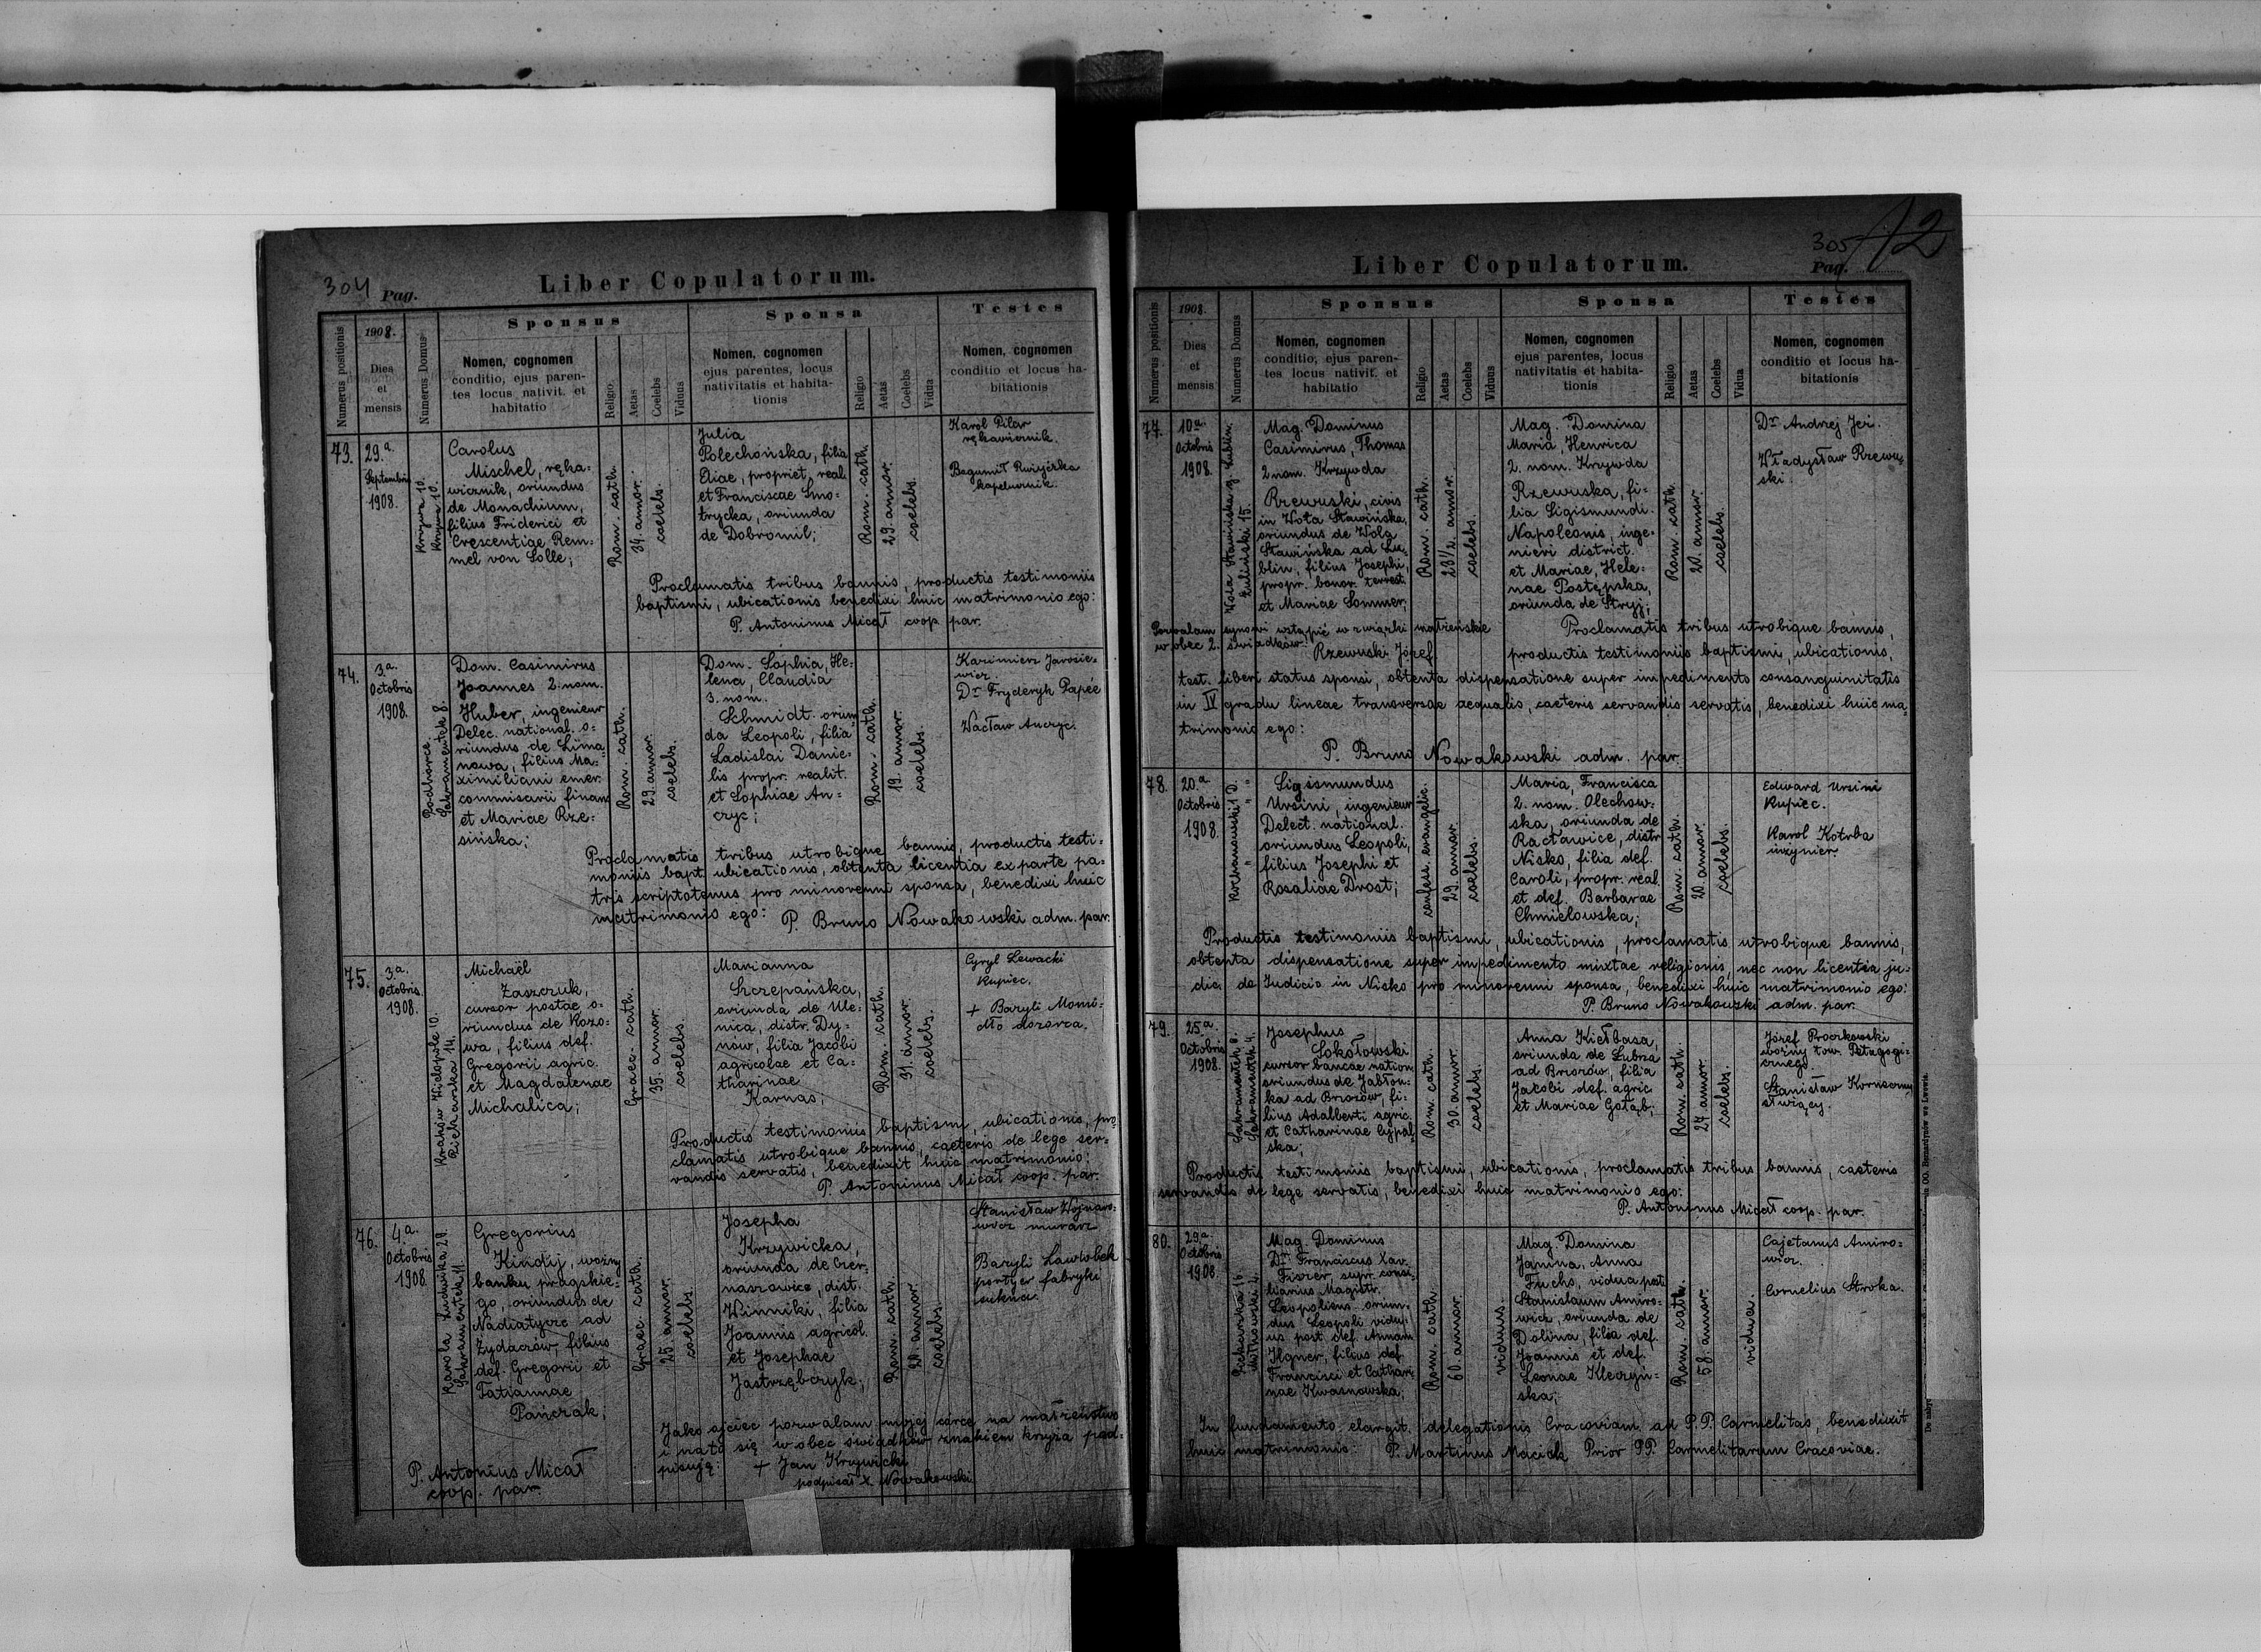 304 Pag.
Liber Copulatorum.
Numerus positionis
1908.
Dies
et
mensis
Numerus Domus
Sponsus
Nomen, cognomen
conditio, ejus paren-
tes locus nativit. et
habitatio
Religio
Aetas
Coelebs
Viduus
Sponsa
Nomen, cognomen
ejus parentes, locus
nativitatis et habita-
tionis
Religio
Aetas
Coelebs
Vidua
Testes
Nomen, cognomen
conditio et locus ha-
bitationis
73.
29.a
Septembris
1908.
Carolus
Mischel, ręka-
wicznik, oriundus
de Monachium,
filius Friderici et
Crescentiae Rem-
mel von Solle;
Rom. cath.
34. annor.
coelebs.
Julia
Polechońska, filia
Eliae, propriet. real.
et Franciscae Smo-
trycka, oriunda
de Dobromil;
Rom. cath.
29. annor.
coelebs.
Karol Pilar
rękawicznik.
Bogumił
kapelusznik.
Proclamatis tribus bannis, productis testimoniis
baptismi, ubicationis benedixi huic matrimonio ego:
P. Antoninus Micał coop. par.
74.
3.a
Octobris
1908.
Sakramentek 8.
Dom. Casimirus
Joannes 2. nom.
Huber, ingenieur
Delec. national. o-
riundus de Lima-
nowa, filius Ma-
ximiliani emer.
commisarii finan
et Mariae Rze-
sińska;
Rom. cath.
29. annor.
coelebs.
Dom. Sophia, He-
lena, Claudia
3. nom.
Schmidt. oriun
da Leopoli, filia
Ladislai Danie-
lis propr. realit.
et Sophiae An-
czyc;
Rom. cath.
19. annor.
coelebs.
Kazimierz Jarosie-
wicz.
Dr Fryderyk Papée
Wacław Anczyc.
Proclamatis tribus utrobique bannis, productis testi-
moniis bapt. ubicationis, obtenta licentia ex parte pa-
tris scriptotenus pro minorenni sponsa, benedixi huic
matrimonio ego: P. Bruno Nowakowski adm. par.
75.
3.a
Octobris.
1908.
Kraków Wielopole 10.
Piekarska 14.
Michaël
Zaszczuk,
cursor postae o-
riundus de Kozo-
wa, filius def.
Gregorii agric.
et Magdalenae
Michalica;
Graec. cath.
35. annor.
coelebs.
Marianna
Szczepańska,
oriunda de Ule-
nica, distr. Dy-
nów, filia Jacobi
agricolae et Ca-
tharinae
Karnas;
Rom. cath.
31. annor.
coelebs.
Cyryl Lewacki
kupiec.
+ Bazyli Momo-
dło dozorca.
Productis testimoniis baptismi, ubicationis, pro
clamatis utrobique bannis, caeteris de lege ser-
vandis servatis, benedixit huic matrimonio:
P. Antoninus Micał coop. par.
76.
4.a
Octobris
1908.
Karola Ludwika 29.
Sakramentek 11.
Gregorius
Kindij, woźny
banku pragskie-
go, oriundus de
Nadiatycze ad
Żydaczów, filius
def. Gregorii et
Tatiannae
Pańczak;
Graec. cath.
25. annor.
coelebs.
Josepha
Krzywicka,
oriunda de Czer-
naszowice, dist.
Winniki, filia
Joannis agricol.
et Josephae
Jastrzębczyk;
Rom. cath.
20. annor.
coelebs.
Stanisław Wojnaro-
wicz murarz
Bazyli
portjer fabryki
sukna.
Jako ojciec pozwalam mojej córce na małżeństwo
i nato się wobec świadków znakiem krzyża pod-
pisuję: + Jan Krzywicki
podpisał X. Nowakowski
P. Antonius Micał
coop. par.
305 12
Pag.
Liber Copulatorum.
Numerus positionis
1908.
Dies
et
mensis
Numerus Domus
Sponsus
Nomen, cognomen
conditio, ejus paren-
tes locus nativit. et
habitatio
Religio
Aetas
Coelebs
Viduus
Sponsa
Nomen, cognomen
ejus parentes, locus
nativitatis et habita-
tionis
Religio
Aetas
Coelebs
Vidua
Testes
Nomen, cognomen
conditio et locus ha-
bitationis
77.
10.a
Octobris
1908.
Mag. Dominus
Casimirus, Thomas
2 nom. Krzywda
Rzewuski, civis
in Wola Sławińska,
oriundus de Wola
Sławińska ad Lu-
blin, filius Josephi,
propr. bonor. terrest.
et Mariae Sommer;
Rom. cath.
23 1/2. annor.
coelebs.
Mag. Domina
Maria, Henrica
2. nom. Krzywda
Rzewuska, fi-
lia Sigismundi
Napoleonis, inge-
nieri district.
et Mariae, Hele-
nae Postępska,
oriunda de Stryj;
Rom. cath.
20. annor.
coelebs.
Dr. Andrzej Jeż.
Władysław Rzewu-
ski.
Pozwalam synowi wstąpić w związki małżeńskie
wobec 2. świadków. Rzewuski Józef
Proclamatis tribus utrobique bannis,
productis testimoniis baptismi, ubicationis,
test. liberi status sponsi, obtenta dispensatione super impedimento consanguinitatis
in IV gradu lineae transversae aequalis, caeteris servandis servatis, benedixi huic ma
trimonio ego:
P. Bruno Nowakowski adm. par.
78.
20.a
Octobris
1908.
Sigismundus
Ursini, ingenieur
Delect. national.
oriundus Leopoli,
filius Josephi et
Rosaliae Drost;
confess. evangelic.
29. annor.
coelebs.
Maria, Francisca
2. nom. Olechow-
ska, oriunda de
Racławice, distr
Nisko, filia def.
Caroli, propr. real.
et def. Barbarae
Chmielowska;
Rom. cath.
20. annor.
coelebs.
Edward Ursini
Kupiec.
Karol Kotrba
inżynier.
Productis testimoniis baptismi, ubicationis, proclamatis utrobique bannis,
obtenta dispensatione super impedimento mixtae religionis, nec non licentia ju-
dic. de Judicio in Nisko pro minorenni sponsa, benedixi huic matrimonio ego:
P. Bruno Nowakowski adm. par.
79.
25.a
Octobris
1908.
Sakramentek 8.
Sakramentek 4.
Josephus
Sokołowski
cursor bancae nation.
oriundus de Jabłon-
ka ad Brzozów, fi-
lius Adalberti agric.
et Catharinae Cypal-
ska;
Rom. cath.
30. annor.
coelebs.
Anna Kiełbasa,
oriunda de Lubza
ad Brzozów, filia
Jacobi def. agric.
et Mariae Gołąb;
Rom. cath.
27. annor.
coelebs.
Józef Proczkowski
woźny tow. Pedagogi-
cznego.
Stanisław
Productis testimoniis baptismi, ubicationis, proclamatis tribus bannis, caeteris
servandis de lege servatis, benedixi huic matrimonio ego:
P. Antoninus Micał coop. par.
80.
29.a
Octobris
1908.
Piekarska 16.
Mag. Dominus
Dr. Franciscus Xav.
Fiszer, supr. consi-
liarius Magistr.
Leopoliens. oriun-
dus Leopoli vidu-
us post def. Annam
Ilgner, filius def.
Francisci et Cathari
nae Kwasnowska;
Rom. cath.
60. annor.
viduus.
Mag. Domina
Janina, Anna
Fuchs, vidua post
Stanislaum Amiro-
wicz, oriunda de
Dolina, filia def.
Joannis et def.
Leonae Kleczyń-
ska;
Rom. cath.
58. annor.
vidua.
Cajetanus Amiro-
wicz.
Cornelius Stroka.
In fundamento elargit. delegationis Cracoviam ad P.P. Carmelitas, benedixit
huic matrimonio: P. Martinus Maciak Prior PP Carmelitarum Cracoviae.
OO. Bernardynów we Lwowie.